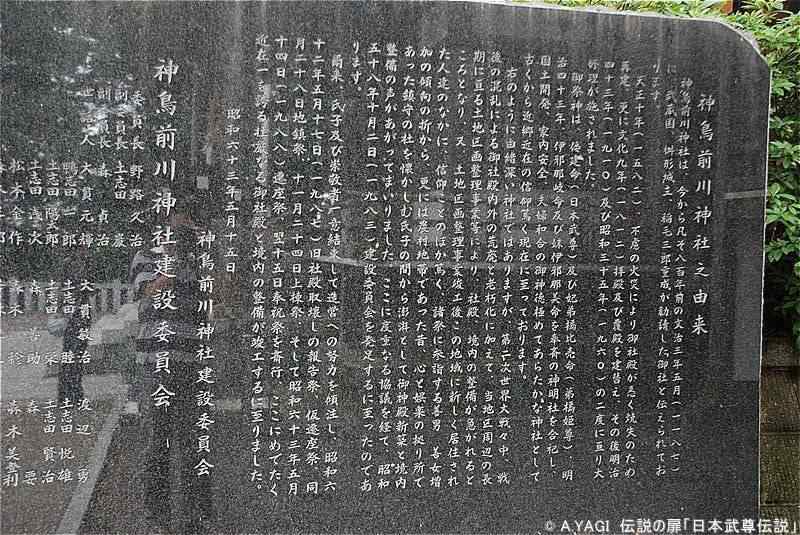 神鳥前川神社之由来
神鳥前川神社は、今から凡そ八百年前の文治三年五月(一一八七)
に、武蔵国、桝形城主、稲毛三郎重成が勧請した御社と伝えられてお
ります。
天正十年(一五八二)、不慮の火災により御社殿が悉く焼失のため
再建、更に文化九年(一八一二)拝殿及び覆殿を建替え、その後明治
四十三年(一九一〇)及び昭和三十五年(一九六〇)の二度に亘り大
修理が施されました。
御祭神は、倭建命(日本武尊)及び妃弟橘比売命(弟橘姫尊)、明
治四十三年、伊邪那岐命及び妹伊邪那美命を奉斎の神明社を合祀し、
国土開発、家内安全、夫婦和合の御神徳極めてあらたかな神社として
古くから近郷近在の信仰篤く現在に至っております。
右のように由緒深い神社ではありますが、第二次世界大戦々中、戦
後の混乱による御社殿内外の荒廃と老朽化に加えて、当地区周辺の長
期に亘る土地区画整理事業等により、社殿、境内の整備が急がれると
ころとなり、又、土地区画整理事業竣工後この地域に新しく居住され
た人達のなかに、信仰ことのほか篤く、諸祭に参詣する善男、善女増
加の傾向の折から、更には農村地帯であった昔、心と娯楽の拠り所で
あった鎮守の杜を懐かしむ氏子の間から澎湃として御神殿新築と境内
整備の声があがってまいりました。ここに度重なる協議を経て、昭和
五十八年十月二日(一九八三)建設委員会を発足するに至ったのであ
ります。
爾来、氏子及び崇敬者一意結束して造営への努力を傾注し、昭和六
十二年五月十七日(一九八七)旧社殿取壊しの報告祭、仮遷座祭、同
月二十八日地鎮祭、十一月二十四日上棟祭、そして昭和六十三年五月
十四日(一九八八)遷座祭、翌十五日奉祝祭を斎行、ここにめでたく
近在一を誇る壮厳なる御社殿と境内の整備が竣工するに至りました。
昭和六十三年五月十五日
神鳥前川神社建設委員会
神鳥前川神社建設委員会
委員長 野路久治
副委員長 土志田 巌
副委員長 森 貞治
世話人 大貫元輝 大貫敏治 渡辺 勇
鴨志田一郎 土志田 睦 土志田悦雄
土志田陽太郎 土志田 栄 土志田賢治
土志田浅次 森 善助 森 要
松本金作 森 森本美登利
© A.YAGI 伝説の扉「日本武尊伝説」